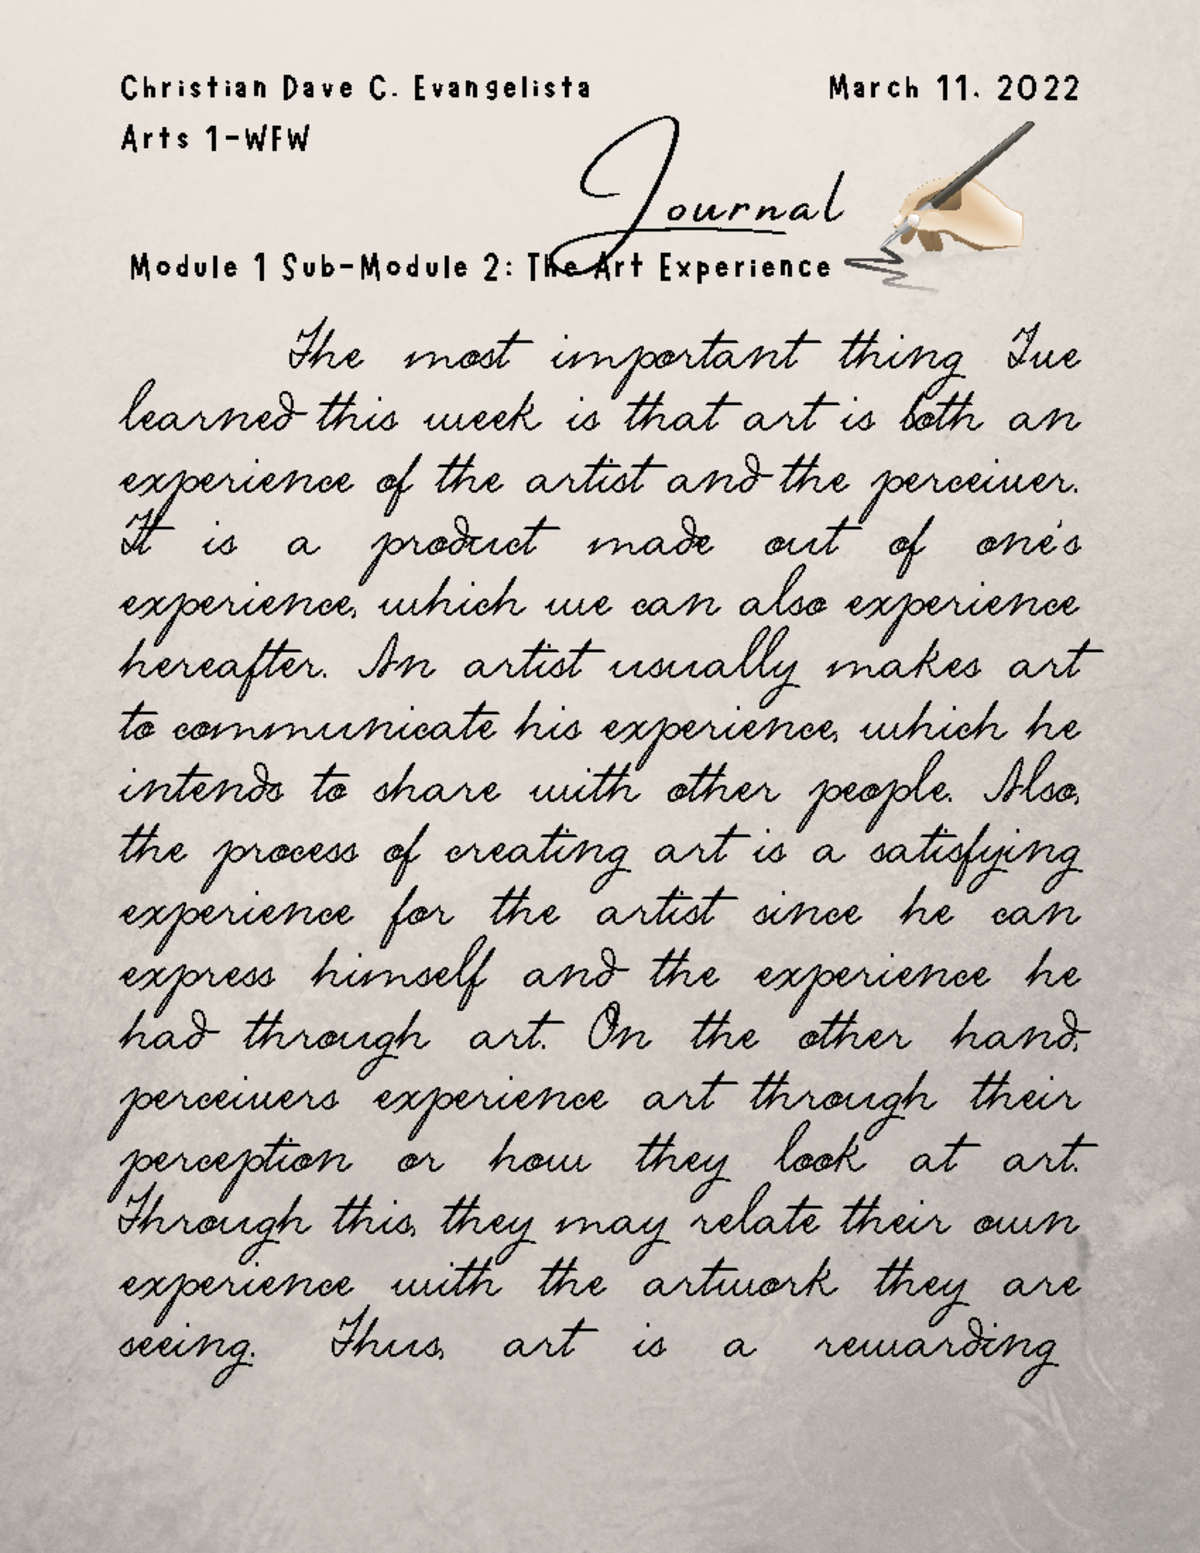 Christian Dave C. Evangelista March 11, 2022
Arts 1-WFW
Journal
Module 1 Sub-Module 2: The Art Experience
The most important thing I've
learned this week is that art is both an
experience of the artist and the perceiver.
It is a product made out of one's
experience, which we can also experience
hereafter. An artist usually makes art
to communicate his experience, which he
intends to share with other people. Also,
the process of creating art is a satisfying
experience for the artist since he can
express himself and the experience he
had through art. On the other hand,
perceivers experience art through their
perception or how they look at art.
Through this, they may relate their own
experience with the artwork they are
seeing. Thus, art is a rewarding